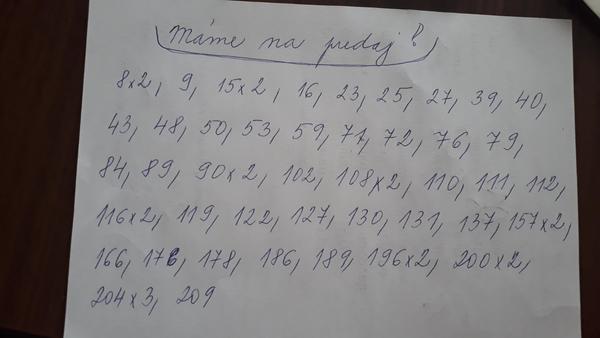 Máme na predaj!
8x2, 9, 15x2, 16, 23, 25, 27, 39, 40,
43, 48, 50, 53, 59, 71, 72, 76, 79,
84, 89, 90x2, 102, 108x2, 110, 111, 112,
116x2, 119, 122, 127, 130, 131, 137, 157x2,
166, 178, 186, 189, 196x2, 200x2,
204x3, 209